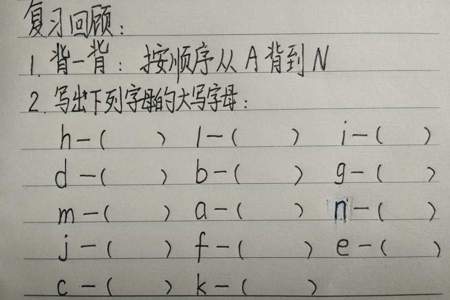 复习回顾：
1. 背一背：按顺序从A背到N
2. 写出下列字母的大写字母：
h-(  ) l-(  ) i-(  )
d-(  ) b-(  ) g-(  )
m-(  ) a-(  ) n-(  )
j-(  ) f-(  ) e-(  )
c-(  ) k-(  )